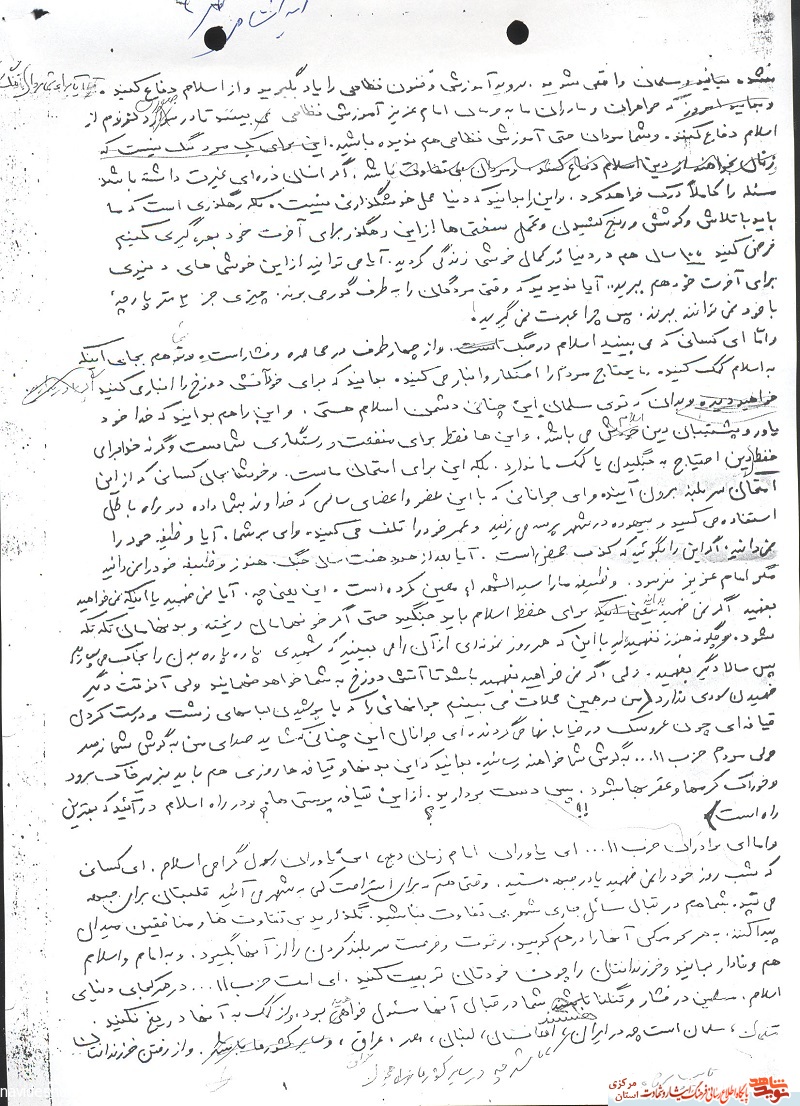 نشده بدانید مسلمان واقعی شوید. بروید آموزش و فنون نظامی را یاد بگیرید و از اسلام دفاع کنید.
خواهران و مادران ما به فرمان امام عزیز آموزش نظامی می بینند تا در
اسلام دفاع کنند. و شما مردان حتی آموزش نظامی هم ندیده باشید. این برای یک مرد ننگ نیست که
زنان بخواهند از دین اسلام دفاع کنند و مردان بی تفاوت باشند. اگر انسان ذره ای غیرت داشته باشد
مسئله را کاملاً درک خواهد کرد. و این را بدانید که دنیا محل خوشگذرانی نیست. بلکه رهگذری است که ما
باید با تلاش و کوشش و رنج کشیدن و تحمل سختی ها از این رهگذر برای آخرت خود بهره گیری کنیم
فرض کنید ۱۰۰ سال هم در دنیا در کمال خوشی زندگی کردید. آیا می توانید از این خوشی های دنیوی
برای آخرت خود هم ببرید. آیا ندیدید که وقتی مردگان را به طرف گور می برند. چیزی جز ۳ متر پارچه
با خود نمی توانند ببرند. پس چرا عبرت نمی گیرید!
و امّا ای کسانی که می بینید اسلام در جنگ است. و از چهار طرف در محاصره و فشار است و شما هم بجای اینکه
به اسلام کمک کنید. مایحتاج مردم را احتکار و انبار می کنید. بدانید که برای خود آتش دوزخ را انباری کنید
و بدان که توی مسلمان این چنانی دشمن اسلام هستی. و این را هم بدانید که خدا خود
یاور و پشتیبان دین اسلام می باشد. و این ها فقط برای منفعت و رستگاری شماست و گرنه خدا برای
حفظ دین احتیاج به جنگیدن یا کمک ما ندارد. بلکه این برای امتحان ماست. و خوشا بحال کسانی که از این
امتحان سربلند برون آیند و ای جوانانی که با این عقل و اعضای سالمی که خداوند بشما داده در راه باطل
استفاده می کنید و بیهوده در شهر پرسه می زنید و عمر خود را تلف می کنید. وای بر شما. آیا وظیفه خود را
نمی دانید. اگر این را بگوئید که کذب محض است. آیا بعد از حدود هفت سال جنگ هنوز وظیفه خود را نمی دانید
مگر امام عزیز نفرمود. وظیفه ما را سیدالشهداء معین کرده است. این یعنی چه. آیا نمی فهمید یا اینکه نمی خواهید
بفهمید اگر نمی فهمید بدانید برای حفظ اسلام باید جنگید حتی اگر خونهامان ریخته و بدنهامان تکه تکه
شود. و چگونه هنوز نفهمیده اید با این که هر روز نمونه ای از آن را می بینید که شهیدی پاره پاره بدن را بخاک می سپاریم
پس حالا دیگر بفهمید. ولی اگر نمی خواهید بفهمید باشد تا آتش دوزخ به شما خواهد فهماند ولی آنوقت دیگر
فهمیدن سودی ندارد (من در همین محلات می بینیم جوانهائی را که با پوشیدن لباسهای زشت و درست کردن
قیافه ای چون عروسک در خیابانها می گردند. ای جوانان این چنانی شاید صدای من به گوش شما نرسد
ولی مردم حزب ا... به گوش شما خواهند رسانید. بدانید که این بدنها و قیافه ها روزی هم باید بزیر خاک برود
و خوراک کرمها و عقربها بشود. پس دست بردارید. از این قیافه پرستی ها. و در راه اسلام درآئید که بهترین
راه است)
و اما ای برادران حزب ا... ای یاوران امام زمان (عج)، ای یاوران رسول گرامی اسلام. ای کسانی
که شب و روز خود را نمی فهمید یا در جبهه هستید. وقتی هم که برای استراحت کمی به شهر می آئید قلبتان برای جبهه
می تپد. شما هم در قبال مسائل جاری شهر بی تفاوت نباشید. نگذارید بی تفاوت ها و منافقین میدان
پیدا کنند. به هر نحو ممکن آنها را در هم کوبید. رخوت و فرصت سر بلند کردن را از آنها بگیرید. و به امام و اسلام
هم وفادار بمانید و فرزندانتان را چون خودتان تربیت کنید. ای امت حزب ا... در هر کجای دنیای
اسلام. مسلمین در فشار و تنگنا هستند شما در قبال آنها مسئول خواهید بود. و از کمک به آنها دریغ نکنید.
مسلمان است چه در ایران، افغانستان، لبنان، مصر، عراق، و سایر کشورها. و از رفتن فرزندانتان
نوید شاهد
پایگاه اطلاع رسانی فرهنگ ایثار و شهادت
استان مرکزی